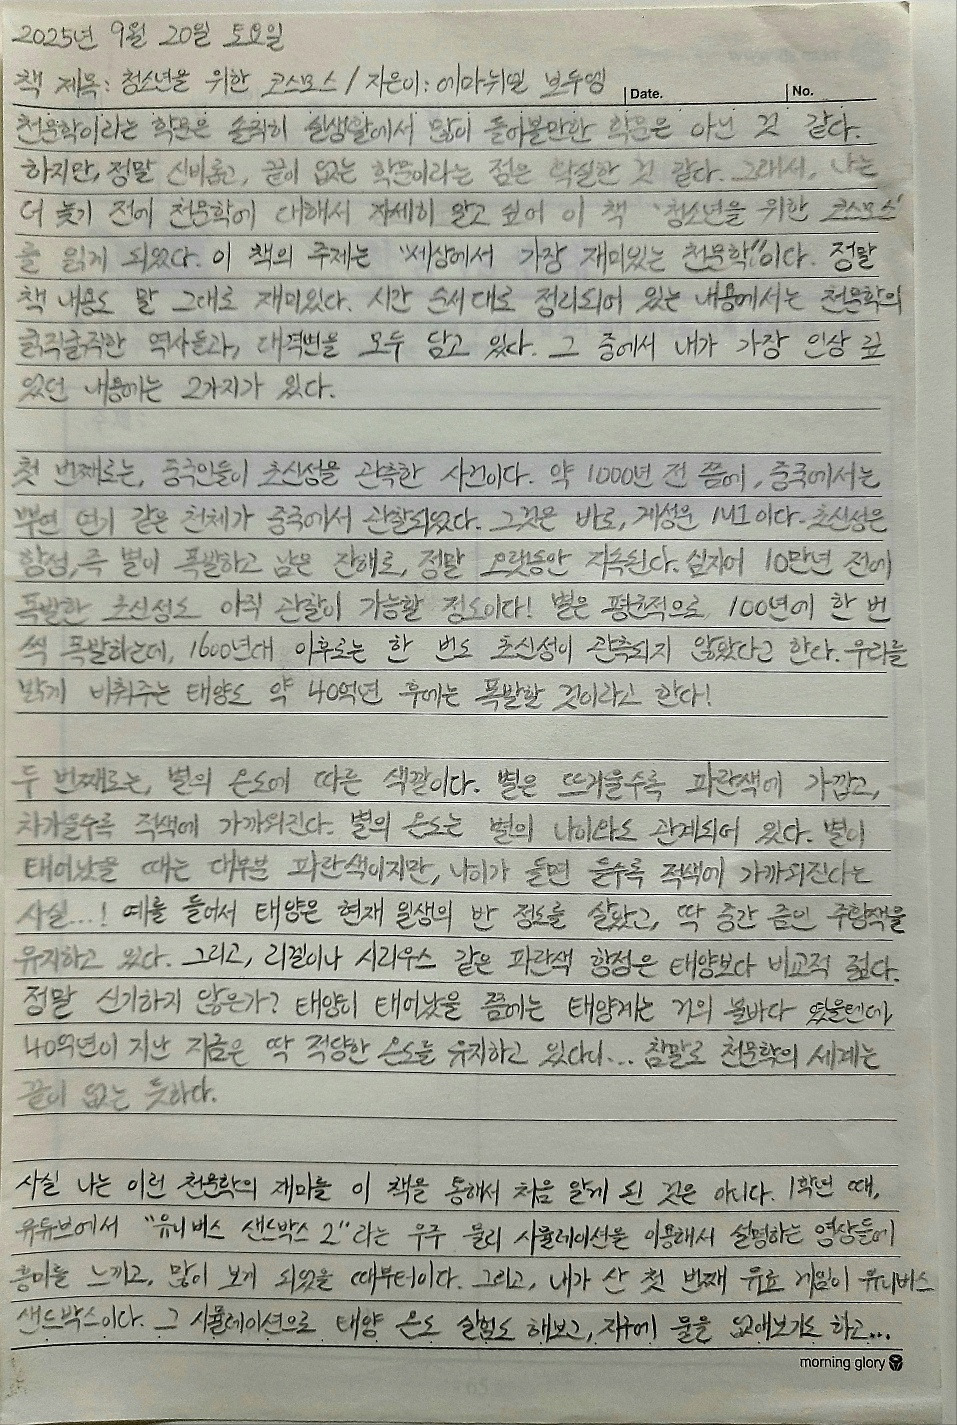 2025년 9월 20일 토요일
책 제목: 청소년을 위한 코스모스 / 지은이: 에마뉘엘 보두엥
Date. No.
천문학이라는 학문은 솔직히 실생활에서 많이 들어볼만한 학문은 아닌 것 같다.
하지만, 정말 신비롭고, 끝이 없는 학문이라는 점은 확실한 것 같다. 그래서, 나는
더 늦기 전에 천문학에 대해서 자세히 알고 싶어 이 책 '청소년을 위한 코스모스'
를 읽게 되었다. 이 책의 주제는 "세상에서 가장 재미있는 천문학"이다. 정말
책 내용도 말 그대로 재미있다. 시간 순서대로 정리되어 있는 내용에서는 천문학의
굵직굵직한 역사들과, 대격변을 모두 담고 있다. 그 중에서 내가 가장 인상 깊
었던 내용에는 2가지가 있다.
첫 번째로는, 중국인들이 초신성을 관측한 사건이다. 약 1000년 전 쯤에, 중국에서는
뿌연 연기 같은 천체가 중국에서 관찰되었다. 그것은 바로, 게성운 M1이다. 초신성은
항성, 즉 별이 폭발하고 남은 잔해로, 정말 오랫동안 지속된다. 심지어 10만년 전에
폭발한 초신성도 아직 관찰이 가능할 정도이다! 별은 평균적으로 100년에 한 번
씩 폭발하는데, 1600년대 이후로는 한 번도 초신성이 관측되지 않았다고 한다. 우리를
밝게 비춰주는 태양도 약 40억년 후에는 폭발할 것이라고 한다!
두 번째로는, 별의 온도에 따른 색깔이다. 별은 뜨거울수록 파란색에 가깝고,
차가울수록 적색에 가까워진다. 별의 온도는 별의 나이와도 관계되어 있다. 별이
태어났을 때는 대부분 파란색이지만, 나이가 들면 들수록 적색에 가까워진다는
사실...! 예를 들어서 태양은 현재 일생의 반 정도를 살았고, 딱 중간 즘인 주황색을
유지하고 있다. 그리고, 리겔이나 시리우스 같은 파란색 항성은 태양보다 비교적 젊다.
정말 신기하지 않은가? 태양이 태어났을 쯤에는 태양계는 거의 불바다 였을텐데
40억년이 지난 지금은 딱 적당한 온도를 유지하고 있다니... 참말로 천문학의 세계는
끝이 없는 듯하다.
사실 나는 이런 천문학의 재미를 이 책을 통해서 처음 알게 된 것은 아니다. 1학년 때,
유튜브에서 "유니버스 샌드박스 2"라는 우주 물리 시뮬레이션을 이용해서 설명하는 영상들에
흥미를 느끼고, 많이 보게 되었을 때부터이다. 그리고, 내가 산 첫 번째 유료 게임이 유니버스
샌드박스이다. 그 시뮬레이션으로 태양 온도 실험도 해보고, 지구에 물을 없애보기도 하고...
morning glory